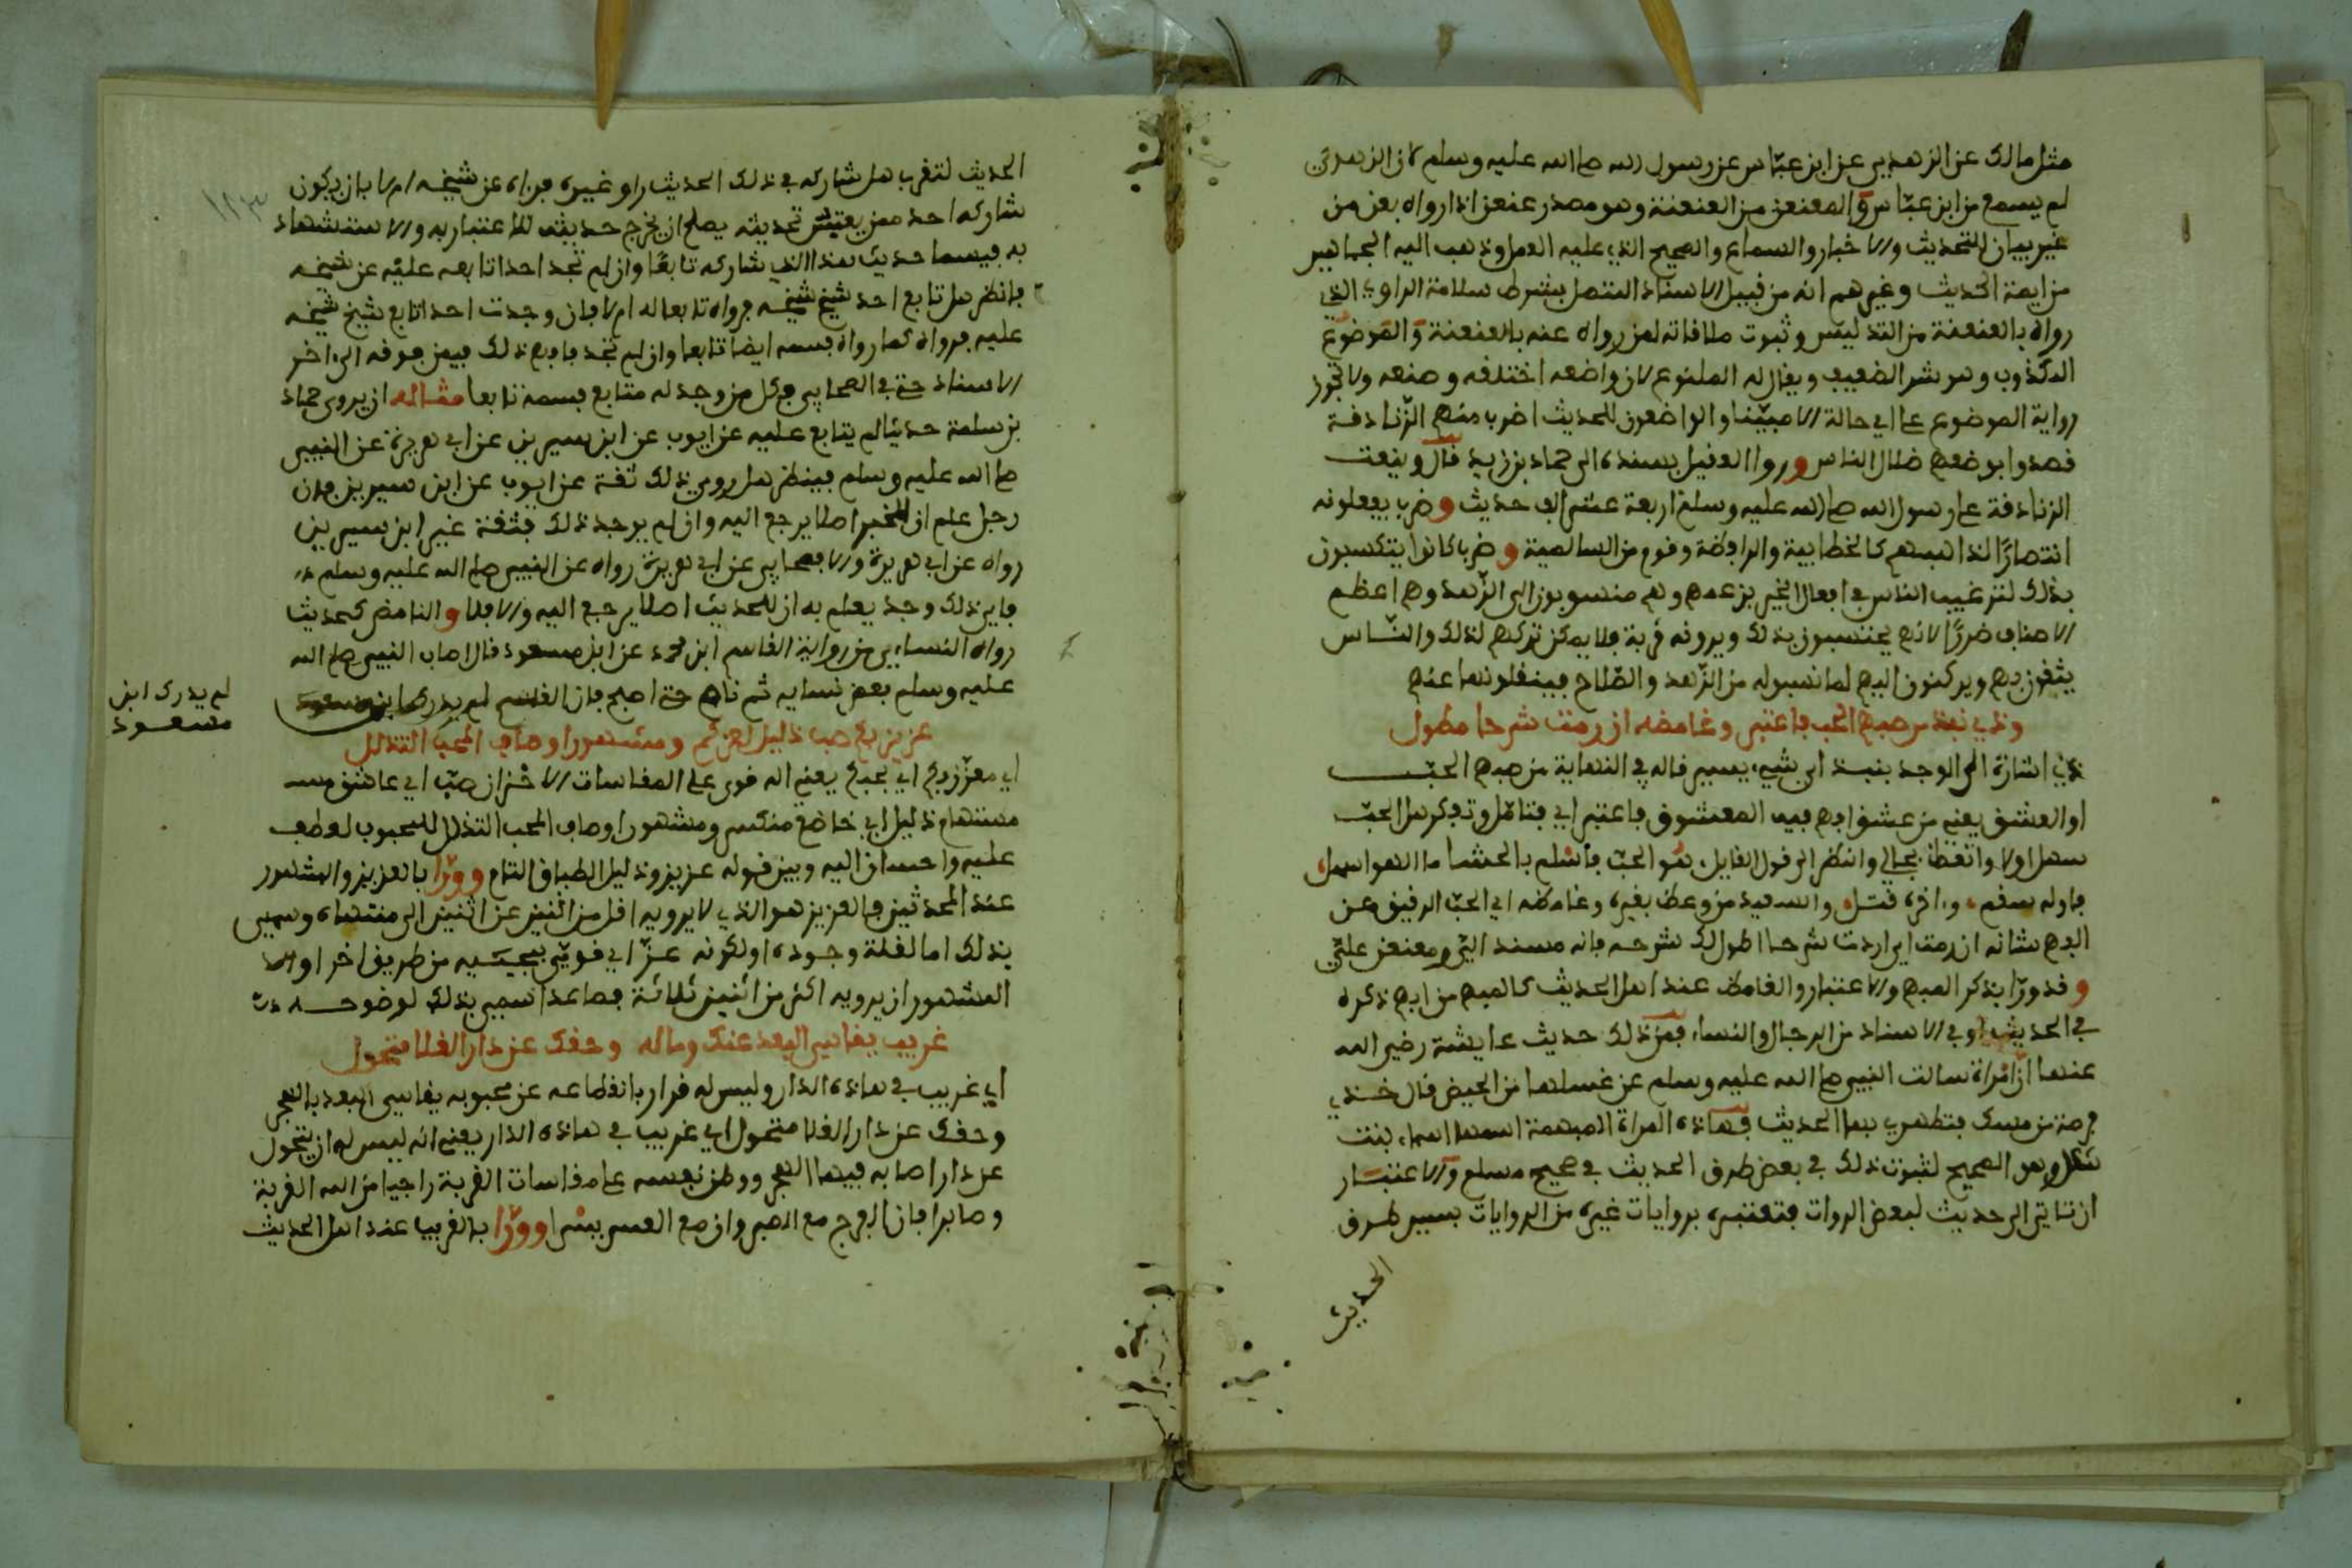 مثل مالك عن الزهري عن ابن عباس عن رسول الله صلى الله عليه وسلم لان الزهري
لم يسمع من ابن عباس والمعنعن من العنعنة وهو مصدر عنعن اذا رواه بعن من
غير بيان للتحديث والاخبار والسماع والصحيح الذي عليه العمل وذهب اليه الجماهير
من ايمة الحديث وغيرهم انه من قبيل الاسناد المتصل بشرط سلامة الراوي الذي
رواه بالعنعنة من التدليس وثبوت ملاقاته لمن رواه عنه بالعنعنة والموضوع
المكذوب وهو شر الضعيف ويقال له المصنوع لان واضعه اختلقه وصنعه ولا تجوز
رواية الموضوع على اي حالة الا مبينا والواضعون للحديث اضرب منهم الزنادقة
قصدوا بوضعهم ضلال الناس وروا العقيلي بسنده الى حماد بن زيد قال وضعت
الزنادقة على رسول الله صلى الله عليه وسلم اربعة عشر الف حديث وضرب يفعلونه
انتصارا لمذاهبهم كالخطابية والرافضة وقوم من السالمية وضرب كانوا يتكسبون
بذلك لترغيب الناس في افعال الخير بزعمهم وهم منسوبون الى الزهد وهم اعظم
الاصناف ضررا لانهم يحتسبون بذلك ويرونه قربة فلا يمكن تركهم لذلك والناس
يثقون بهم ويركنون اليهم لما نسبوا له من الزهد والصلاح فينقلونها عنهم
وذي نبذ من مبهم الحب فاعتبر وغامضه ان رمت شرحا مطول
ذي اشارة الى الوجد بنبذ اي شيء يسير قاله في النهاية من مبهم الحب
او العشق يعني من عشق ابهم فيه المعشوق فاعتبر اي فتامل وتفكر هل الحب
سهل اولا واتعظ بحالي وانظر الى قول القايل هو الحب فاسلم بالحشا ما الهوا سهل
فاوله سقم واخره قتل والسعيد من وعظ بغيره وغامضه اي الحب الرقيق عن
الفهم شانه ان رمت اي اردت شرحا اطول لك شرحه فانه مسند الي ومعنعن علي
وقد ورا بذكر المبهم والاعتبار والغامض عند اهل الحديث فالمبهم من ابهم ذكره
في الحديث او في الاسناد من الرجال والنساء فمن ذلك حديث عايشة رضي الله
عنها ان امراة سالت النبي صلى الله عليه وسلم عن غسلها من الحيض قال خذي
فرصة من مسك فتطهري بها الحديث فهاذه المراة المبهمة اسمها اسماء بنت
شكل وهو الصحيح لثبوت ذلك في بعض طرق الحديث في صحيح مسلم والاعتبار
ان تاتي الى حديث لبعض الروات فتعتبره بروايات غيره من الروايات بسير طرق
الحديث
الحديث لتعرف هل شاركه في ذلك الحديث راو غيره فرواه عن شيخه ام لا بان يكون
شاركه احد ممن يعتبر بحديثه يصلح ان يخرج حديثه للاعتبار به والاستشهاد
به فيسما حديث هذا الذي شاركه تابعا وان لم تجد احدا تابعه عليه عن شيخه
فانظر هل تابع احد شيخ شيخه فرواه تابعا له ام لا فان وجدت احدا تابع شيخ شيخه
عليه فرواه كما رواه فسمه ايضا تابعا وان لم تجد فافعل ذلك فيمن فوقه الى اخر
الاسناد حتى في الصحابي فكل من وجد له متابع فسمه تابعا مثاله ان يروي حماد
بن سلمة حديثا لم يتابع عليه عن ايوب عن ابن سيرين عن ابي هريرة عن النبي
صلى الله عليه وسلم فينظر هل روى ذلك ثقة عن ايوب عن ابن سيرين فان
وجد علم ان للخبر اصلا يرجع اليه وان لم يوجد ذلك فثقة غير ابن سيرين
رواه عن ابي هريرة والا فصحابي غير ابي هريرة رواه عن النبي صلى الله عليه وسلم
فاي ذلك وجد يعلم به ان للحديث اصلا يرجع اليه والا فلا والغامض كحديث
رواه النساءي من رواية القاسم ابن محمد عن ابن مسعود قال اصاب النبي صلى الله
عليه وسلم بعض نسايه ثم نام حتى اصبح فان القاسم لم يدرك ابن مسعود
لم يدرك ابن
مسعود
عزيز بكم صب ذليل لعزكم ومشهور اوصاف المحب التذلل
اي معزز بكم اي بحبكم يعني انه قوي على المقاسات الاحزان صب اي عاشق
مستهام ذليل اي خاضع منكسر ومشهور اوصاف المحب التذلل للمحبوب لعطف
عليه واحسان اليه وبين قوله عزيز وذليل الطباق التام وورا بالعزيز والمشهور
عند المحدثين فالعزيز هو الذي لا يرويه اقل من اثنين عن اثنين الى منتهاه وسمي
بذلك اما لقلة وجوده او لكونه عز اي قوي بمجيئه من طريق اخر
المشهور ان يرويه اكثر من اثنين ثلاثة فصاعدا سمي بذلك لوضوحه
غريب يقاسي البعد عنك وماله وحقك عن دار القلا متحول
اي غريب في هاذه الدار وليس له قرار بانقطاعه عن محبوبه يقاسي البعد بالهجر
وحقك عن دار القلا متحول اي غريب في هاذه الدار يعني انه ليس له ان يتحول
عن دار اصابه فيها الهجر ووطن نفسه على مقاسات الغربة راجيا من الله القربة
وصابرا فان الفرج مع الصبر وان مع العسر يسرا وورا بالغريب عند اهل الحديث